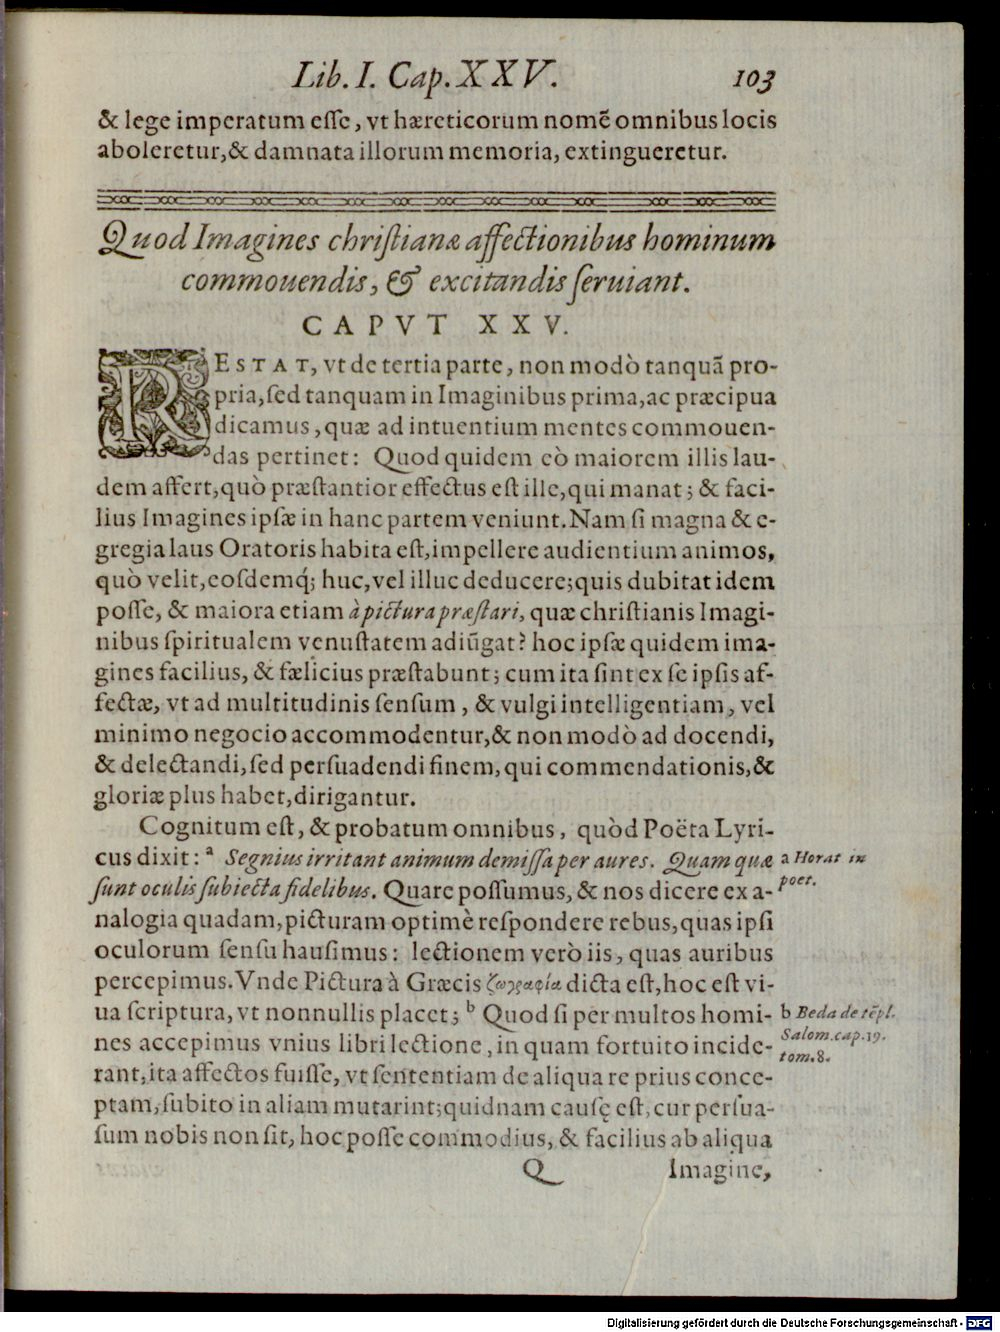 Lib. I. Cap. XXV. 103
& lege imperatum eſſe, vt hæreticorum nomẽ omnibus locis
aboleretur, & damnata illorum memoria, extingueretur.
Quod Imagines chriſtianæ affectionibus hominum
commouendis, & excitandis ſeruiant.
CAPVT XXV.
RESTAT, vt de tertia parte, non modò tanquã pro-
pria, ſed tanquam in Imaginibus prima, ac præcipua
dicamus, quæ ad intuentium mentes commouen-
das pertinet: Quod quidem eò maiorem illis lau-
dem affert, quò præſtantior effectus eſt ille, qui manat; & faci-
lius Imagines ipſæ in hanc partem veniunt. Nam ſi magna & e-
gregia laus Oratoris habita eſt, impellere audientium animos,
quò velit, eoſdemq́; huc, vel illuc deducere; quis dubitat idem
poſſe, & maiora etiam à pictura præſtari, quæ chriſtianis Imagi-
nibus ſpiritualem venuſtatem adiũgat? hoc ipſæ quidem ima-
gines facilius, & fælicius præſtabunt; cum ita ſint ex ſe ipſis af-
fectæ, vt ad multitudinis ſenſum, & vulgi intelligentiam, vel
minimo negocio accommodentur, & non modò ad docendi,
& delectandi, ſed perſuadendi finem, qui commendationis, &
gloriæ plus habet, dirigantur.
Cognitum eſt, & probatum omnibus, quòd Poëta Lyri-
cus dixit: a Segnius irritant animum demiſſa per aures. Quam quæ
a Horat in
ſunt oculis ſubiecta fidelibus. Quare poſſumus, & nos dicere ex a-
poet.
nalogia quadam, picturam optimè reſpondere rebus, quas ipſi
oculorum ſenſu hauſimus: lectionem verò iis, quas auribus
percepimus. Vnde Pictura à Græcis ζωγραφία dicta eſt, hoc eſt vi-
ua ſcriptura, vt nonnullis placet; b Quod ſi per multos homi-
b Beda de tẽpl.
nes accepimus vnius libri lectione, in quam fortuito incide-
Salom. cap. 19.
tom. 8.
rant, ita affectos fuiſſe, vt ſententiam de aliqua re prius conce-
ptam, ſubito in aliam mutarint; quidnam cauſę eſt, cur perſua-
ſum nobis non ſit, hoc poſſe commodius, & facilius ab aliqua
Q Imagine,
Digitalisierung gefördert durch die Deutsche Forschungsgemeinschaft - DFG